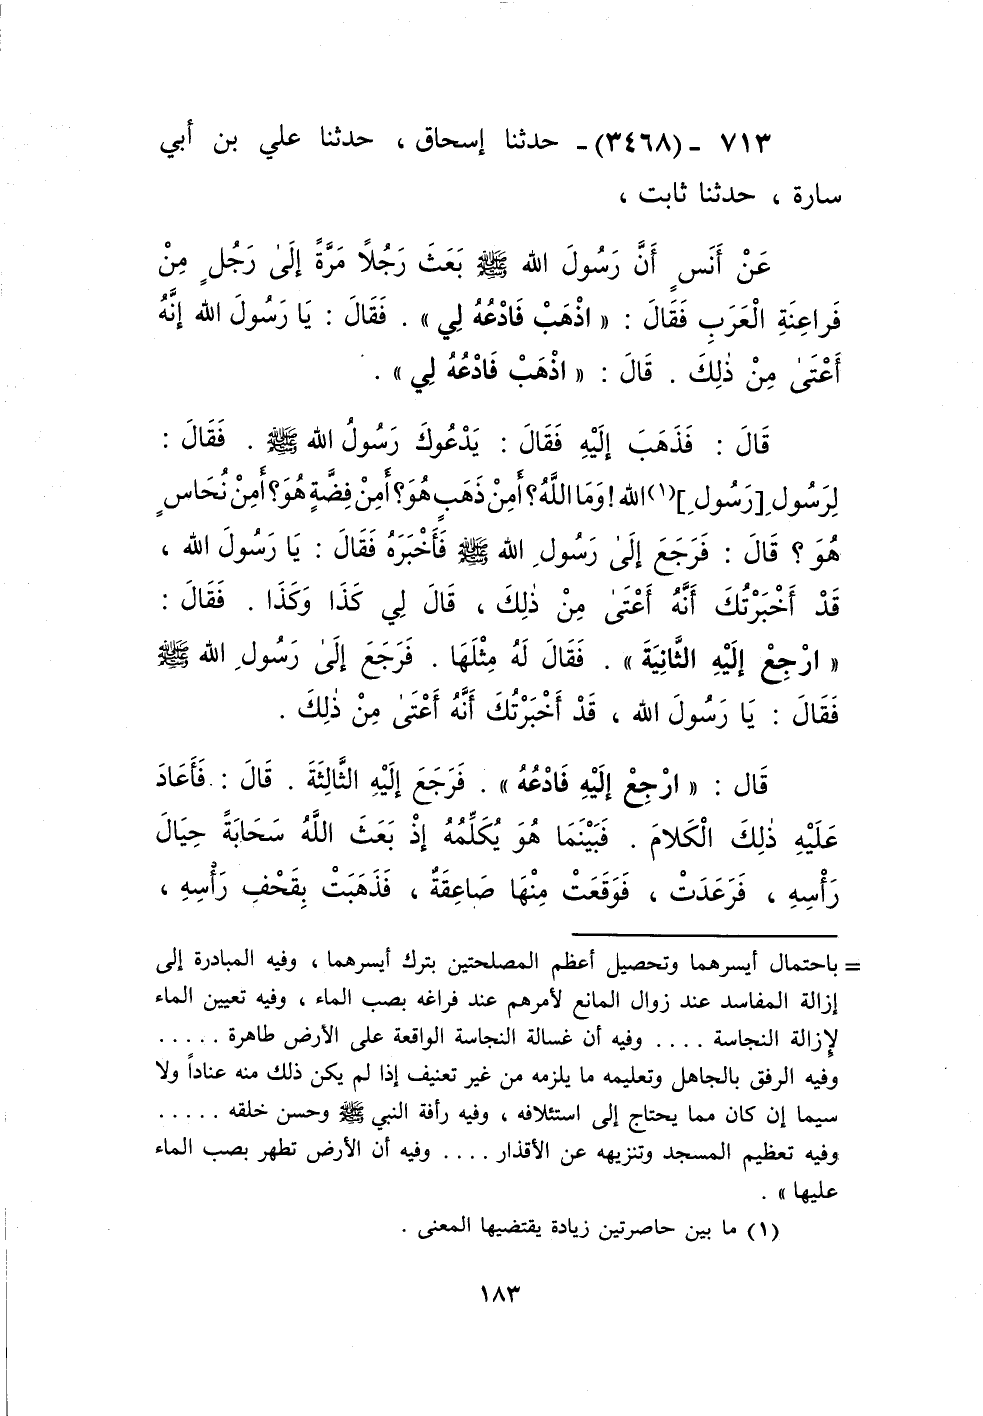 ٧١٣ - (٣٤٦٨) - حدثنا إسحاق ، حدثنا علي بن أبي
سارة ، حدثنا ثابت ،
عَنْ أَنَسٍ أَنَّ رَسُولَ الله ﷺ بَعَثَ رَجُلًا مَرَّةً إِلَىٰ رَجُلٍ مِنْ
فَرَاعِنَةِ الْعَرَبِ فَقَالَ : « اذْهَبْ فَادْعُهُ لِي » . فَقَالَ : يَا رَسُولَ الله إِنَّهُ
أَعْتَىٰ مِنْ ذٰلِكَ . قَالَ : « اذْهَبْ فَادْعُهُ لِي » .
قَالَ : فَذَهَبَ إِلَيْهِ فَقَالَ : يَدْعُوكَ رَسُولُ الله ﷺ . فَقَالَ :
لِرَسُولِ [رَسُولِ] (١) الله ! وَمَا اللَّهُ ؟ أَمِنْ ذَهَبٍ هُوَ ؟ أَمِنْ فِضَّةٍ هُوَ ؟ أَمِنْ نُحَاسٍ
هُوَ ؟ قَالَ : فَرَجَعَ إِلَىٰ رَسُولِ الله ﷺ فَأَخْبَرَهُ فَقَالَ : يَا رَسُولَ الله ،
قَدْ أَخْبَرْتُكَ أَنَّهُ أَعْتَىٰ مِنْ ذٰلِكَ ، قَالَ لِي كَذَا وَكَذَا . فَقَالَ :
« ارْجِعْ إِلَيْهِ الثَّانِيَةَ » . فَقَالَ لَهُ مِثْلَهَا . فَرَجَعَ إِلَىٰ رَسُولِ الله ﷺ
فَقَالَ : يَا رَسُولَ الله ، قَدْ أَخْبَرْتُكَ أَنَّهُ أَعْتَىٰ مِنْ ذٰلِكَ .
قَال : « ارْجِعْ إِلَيْهِ فَادْعُهُ » . فَرَجَعَ إِلَيْهِ الثَّالِثَةَ . قَالَ : فَأَعَادَ
عَلَيْهِ ذٰلِكَ الْكَلامَ . فَبَيْنَمَا هُوَ يُكَلِّمُهُ إِذْ بَعَثَ اللَّهُ سَحَابَةً حِيَالَ
رَأْسِهِ ، فَرَعَدَتْ ، فَوَقَعَتْ مِنْهَا صَاعِقَةٌ ، فَذَهَبَتْ بِقَحْفِ رَأْسِهِ ،
= باحتمال أيسرهما وتحصيل أعظم المصلحتين بترك أيسرهما ، وفيه المبادرة إلى
إزالة المفاسد عند زوال المانع لأمرهم عند فراغه بصب الماء ، وفيه تعيين الماء
لإزالة النجاسة .... وفيه أن غسالة النجاسة الواقعة على الأرض طاهرة .....
وفيه الرفق بالجاهل وتعليمه ما يلزمه من غير تعنيف إذا لم يكن ذلك منه عناداً ولا
سيما إن كان مما يحتاج إلى استئلافه ، وفيه رأفة النبي ﷺ وحسن خلقه .....
وفيه تعظيم المسجد وتنزيهه عن الأقذار .... وفيه أن الأرض تطهر بصب الماء
عليها » .
(١) ما بين حاصرتين زيادة يقتضيها المعنى .
١٨٣